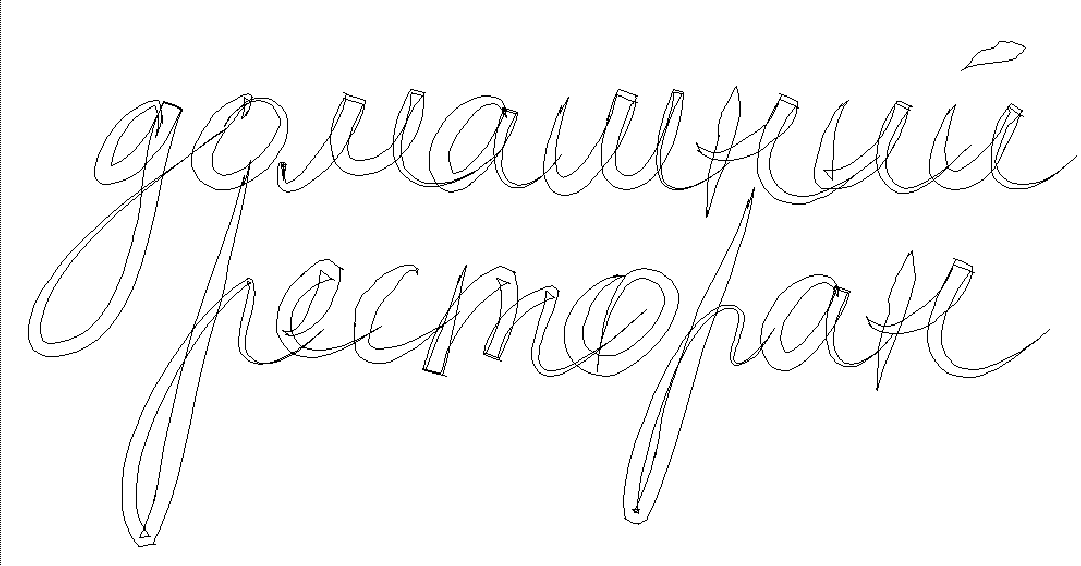 домашний
ресторан